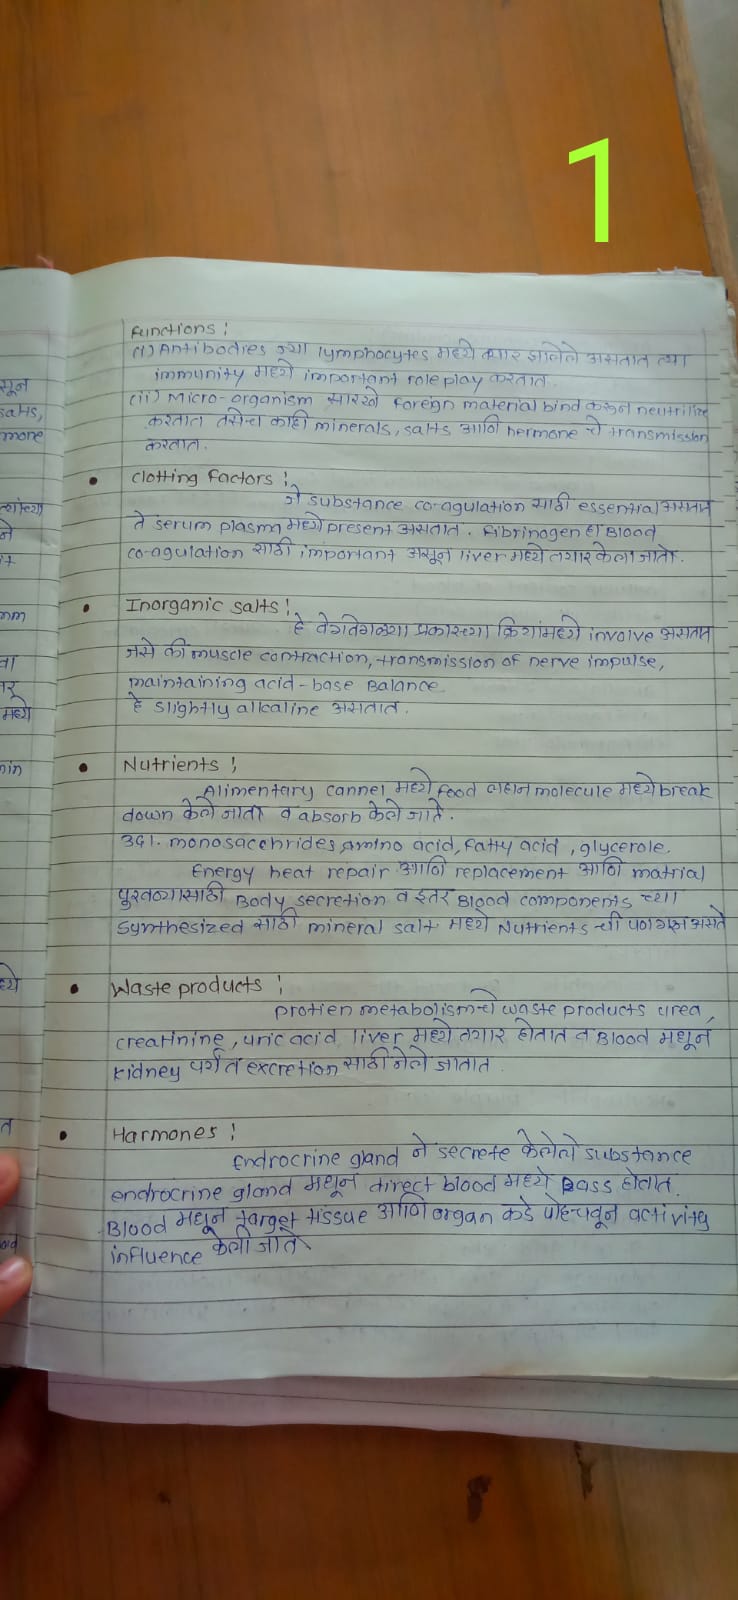 1
Functions :
(i) Antibodies ज्या lymphocytes मध्ये तयार झालेले असतात त्या
immunity मध्ये important role play करतात.
(ii) Micro-organism सारखे foreign material bind करून neutrilize
करतात तसेच काही minerals, salts आणि hermone चे transmission
करतात.
• Clotting factors :
जे substance co-agulation साठी essential असतात
ते serum plasma मध्ये present असतात. Fibrinogen हा Blood
co-agulation साठी important असून liver मध्ये तयार केला जातो.
• Inorganic salts :
हे वेगवेगळ्या प्रकारच्या क्रियांमध्ये involve असतात
जसे की muscle contraction, transmission of nerve impulse,
maintaining acid-base Balance.
हे slightly alkaline असतात.
• Nutrients :
Alimentary cannel मध्ये food लहान molecule मध्ये break
down केले जाता व absorb केले जाते.
उदा. monosacchrides, amino acid, fatty acid, glycerole.
Energy heat repair आणि replacement आणि matrial
पुरवण्यासाठी Body secretion व इतर Blood components च्या
Synthesized साठी mineral salt मध्ये Nutrients ची असते
• Waste products :
protien metabolism चे waste products urea,
creatinine, uric acid liver मध्ये तयार होतात व Blood मधून
kidney पर्यंत excretion साठी नेले जातात.
• Harmones :
Endrocrine gland ने secrete केलेले substance
endrocrine gland मधून direct blood मध्ये pass होतात.
Blood मधून target tissue आणि organ कडे पोहचवून activity
influence केली जाते
सून
salts,
mone
ने
it
mm
वा
मध्ये
min
ध्ये
त